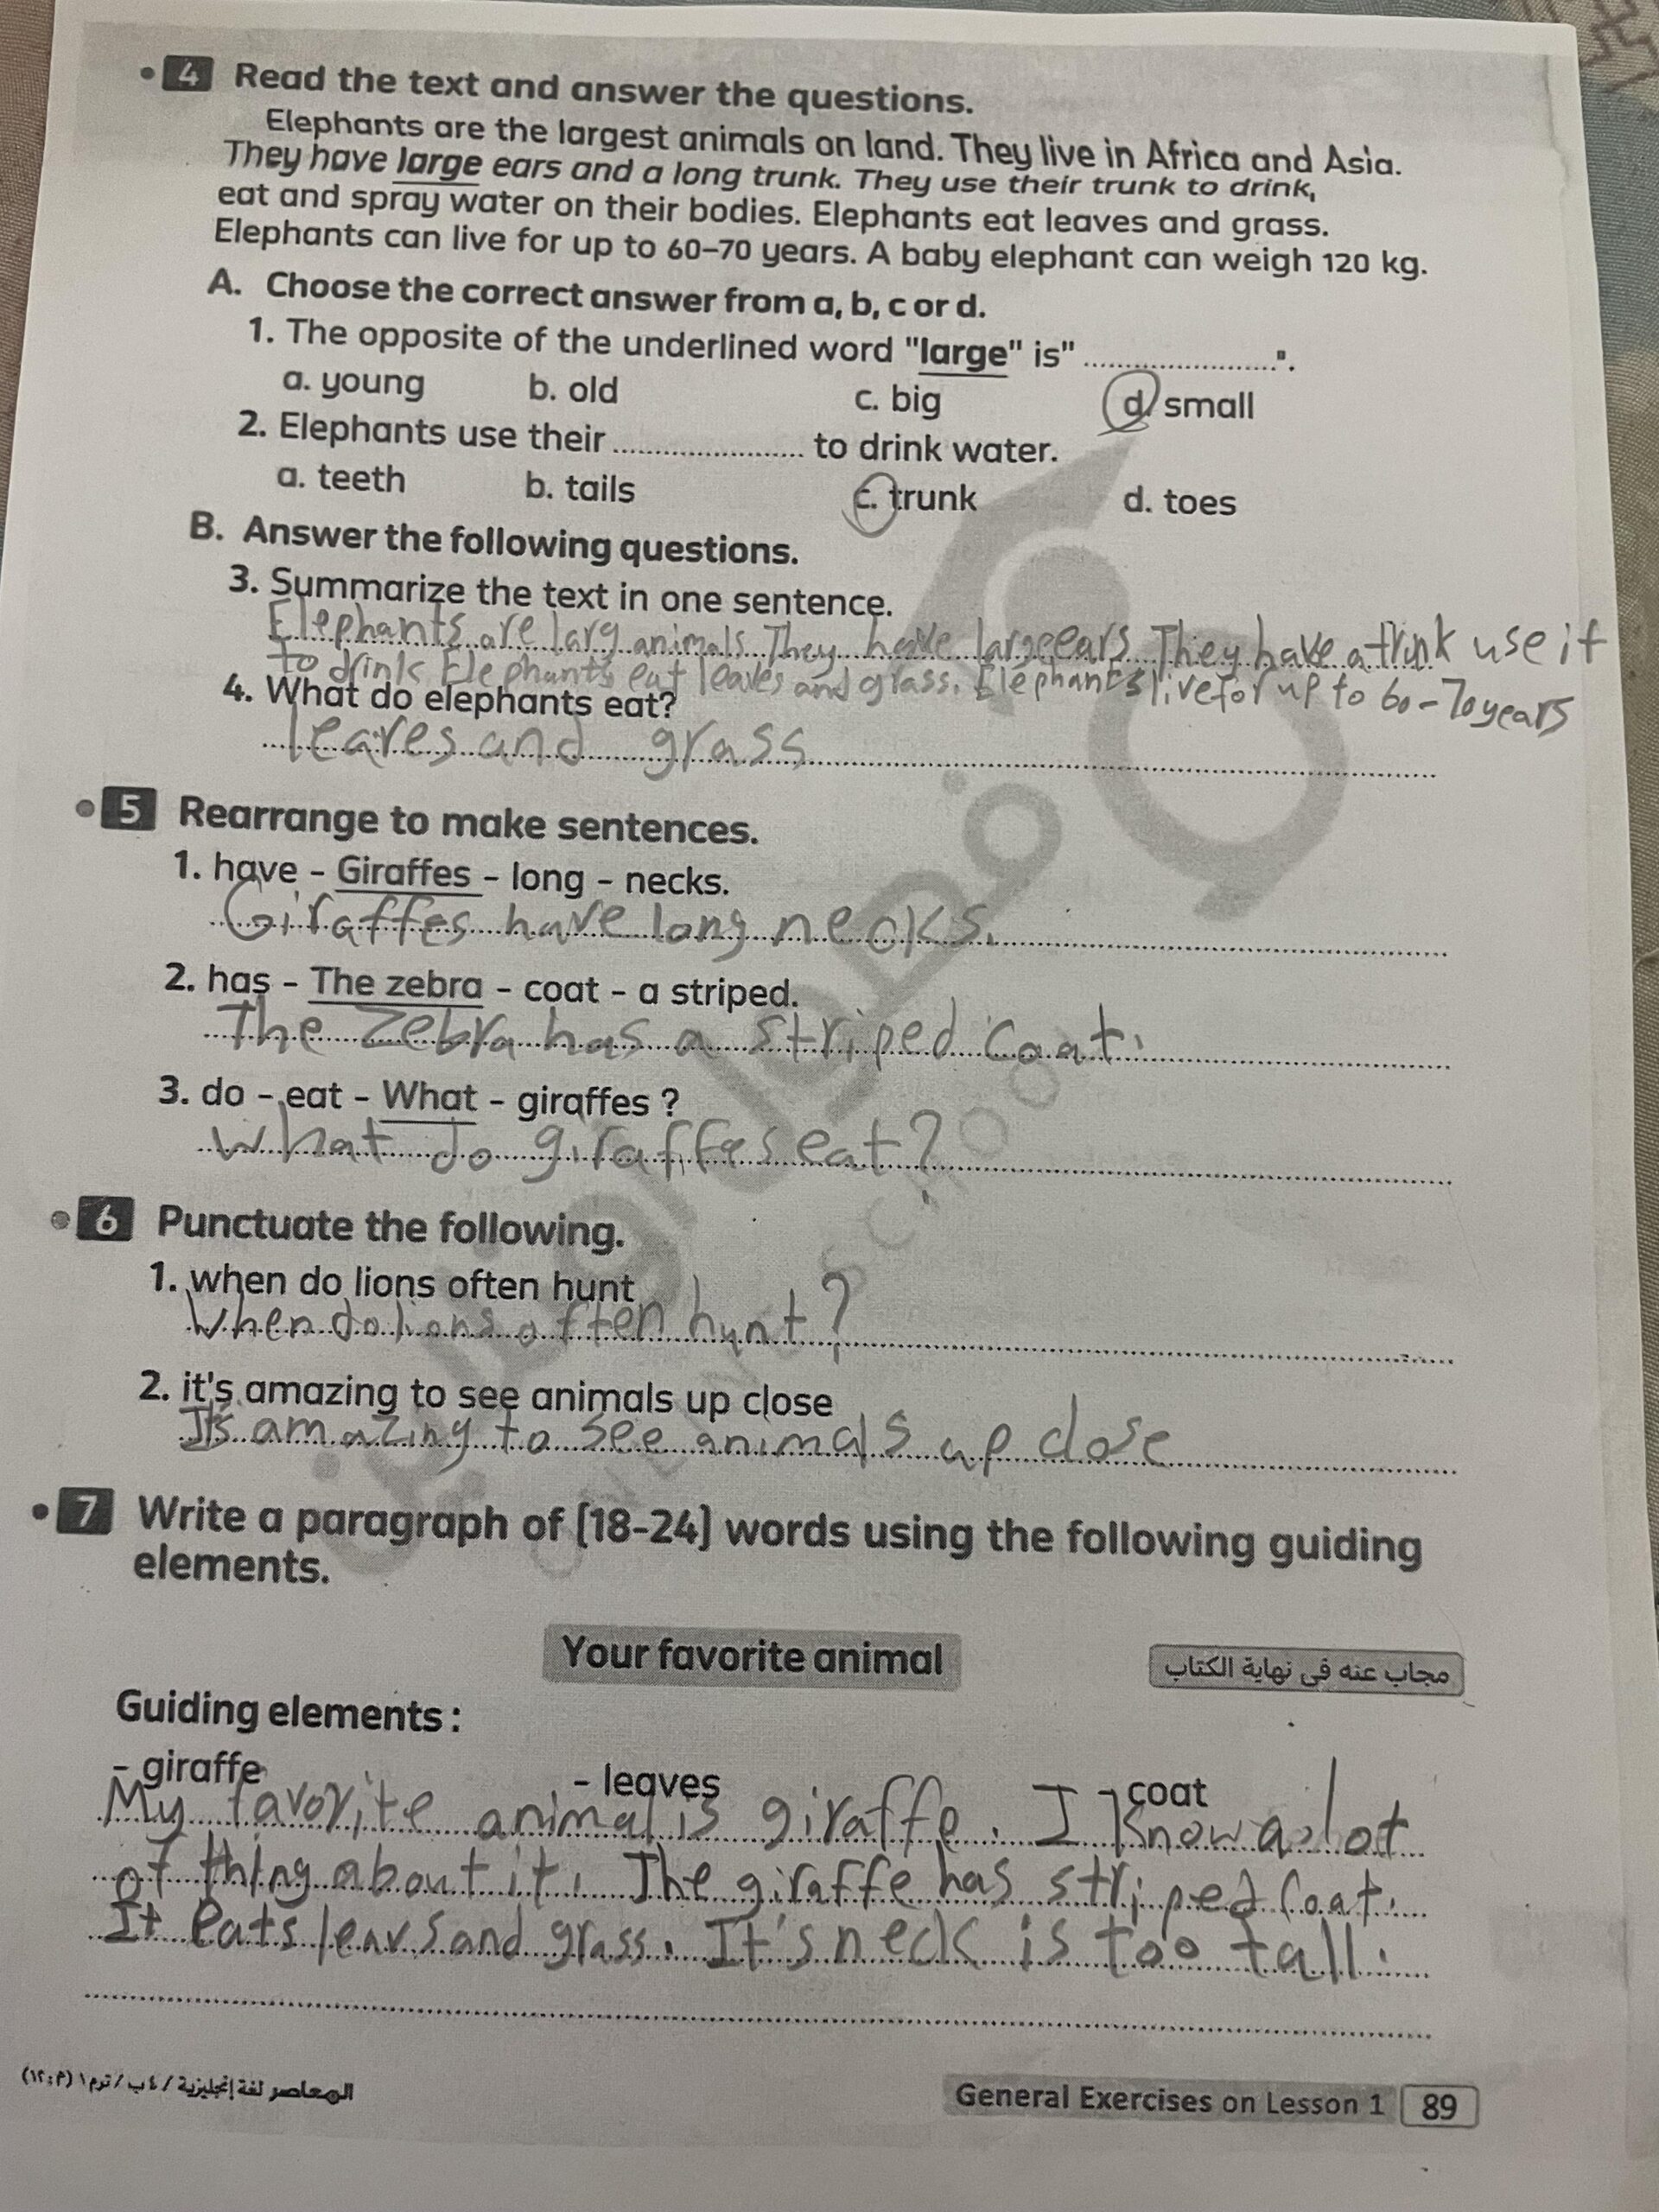 4 Read the text and answer the questions.
Elephants are the largest animals on land. They live in Africa and Asia.
They have large ears and a long trunk. They use their trunk to drink,
eat and spray water on their bodies. Elephants eat leaves and grass.
Elephants can live for up to 60–70 years. A baby elephant can weigh 120 kg.
A. Choose the correct answer from a, b, c or d.
1. The opposite of the underlined word "large" is" ".
a. young b. old c. big d. small
2. Elephants use their to drink water.
a. teeth b. tails c. trunk d. toes
B. Answer the following questions.
3. Summarize the text in one sentence.
Elephants are larg animals. They have large ears. They have a trunk use it
to drink Elephants eat leaves and grass. Elephants live for up to 60-70 years
4. What do elephants eat?
leaves and grass
5 Rearrange to make sentences.
1. have - Giraffes - long - necks.
Giraffes have long necks.
2. has - The zebra - coat - a striped.
The zebra has a striped coat.
3. do - eat - What - giraffes ?
What do giraffes eat?
6 Punctuate the following.
1. when do lions often hunt
When do lions often hunt?
2. it's amazing to see animals up close
It's amazing to see animals up close
7 Write a paragraph of (18-24) words using the following guiding
elements.
Your favorite animal
مجاب عنه فى نهاية الكتاب
Guiding elements :
- giraffe - leaves - coat
My favorite animal is giraffe. I know a lot
of thing about it. The giraffe has striped coat.
It eats leavs and grass. It's neck is too tall.
المعاصر لغة إنجليزية / ٤ ب / ترم ١ (م : ١٢)
General Exercises on Lesson 1 89